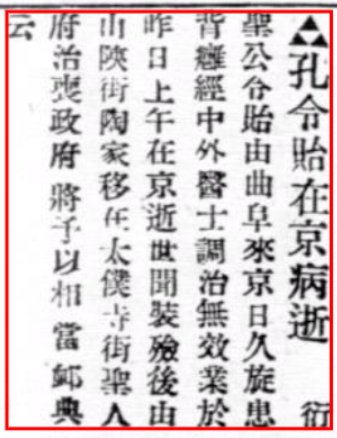 ▲孔令貽在京病逝 衍
聖公令貽由曲阜來京日久旋患
背癰經中外醫士調治無效業於
昨日上午在京逝世聞裝殮後由
山陝街陶家移在太僕寺街聖人
府治喪政府將予以相當卹典
云